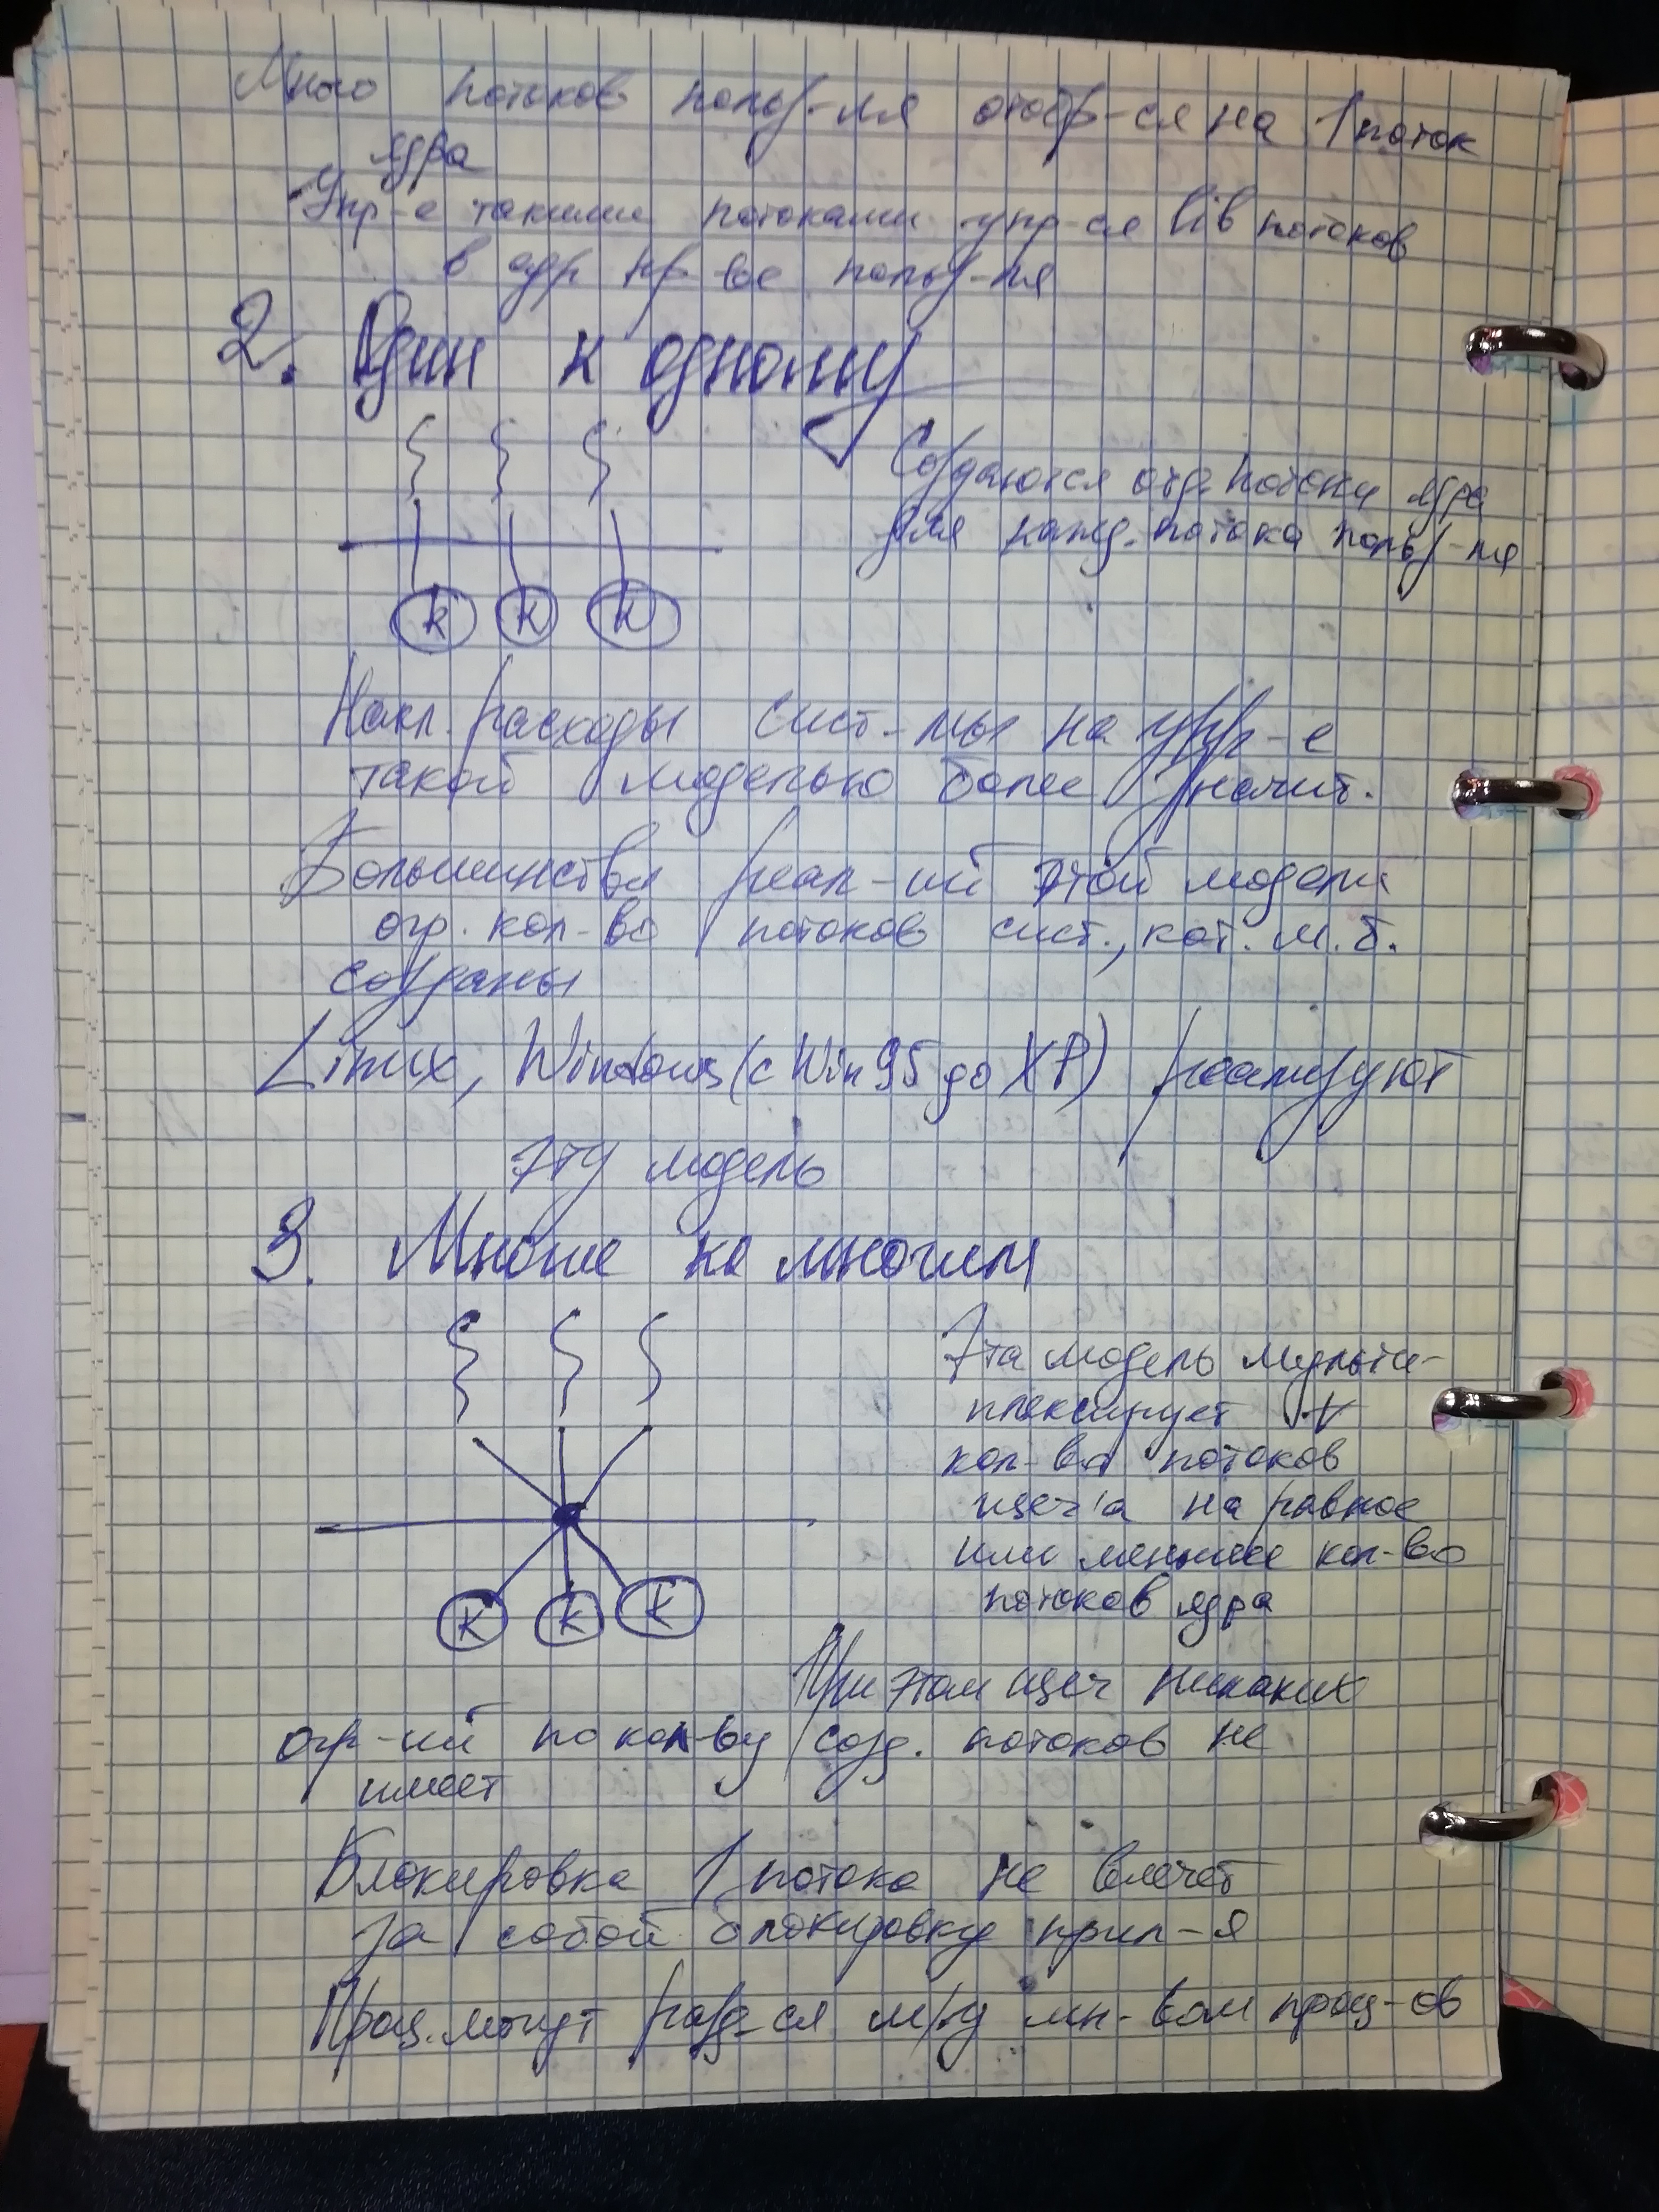 Много потоков польз-ля отобр-ся на 1 поток
ядра
Упр-е такими потоками упр-ся lib потоков
в адр пр-ве польз-ля
2. Один к одному
Создаются отд. потоки ядра
для кажд. потока польз-ля
K K K
Накл. расходы сист-мы на упр-е
такой моделью более значит.
Большинство реал-ий этой модели
огр. кол-во потоков сист., кот. м.б.
созданы
Linux, Windows (с Win 95 до XP) реализуют
эту модель
3. Многие ко многим
Эта модель мульти-
плексирует
кол-во потоков
на равное
или меньшее кол-во
потоков ядра
K K K
При этом никаких
огр-ий по кол-ву созд. потоков не
имеет
Блокировка 1 потока не влечет
за собой блокировку прил-я
Проц. могут разд-ся м/у мн-вом проц-ов